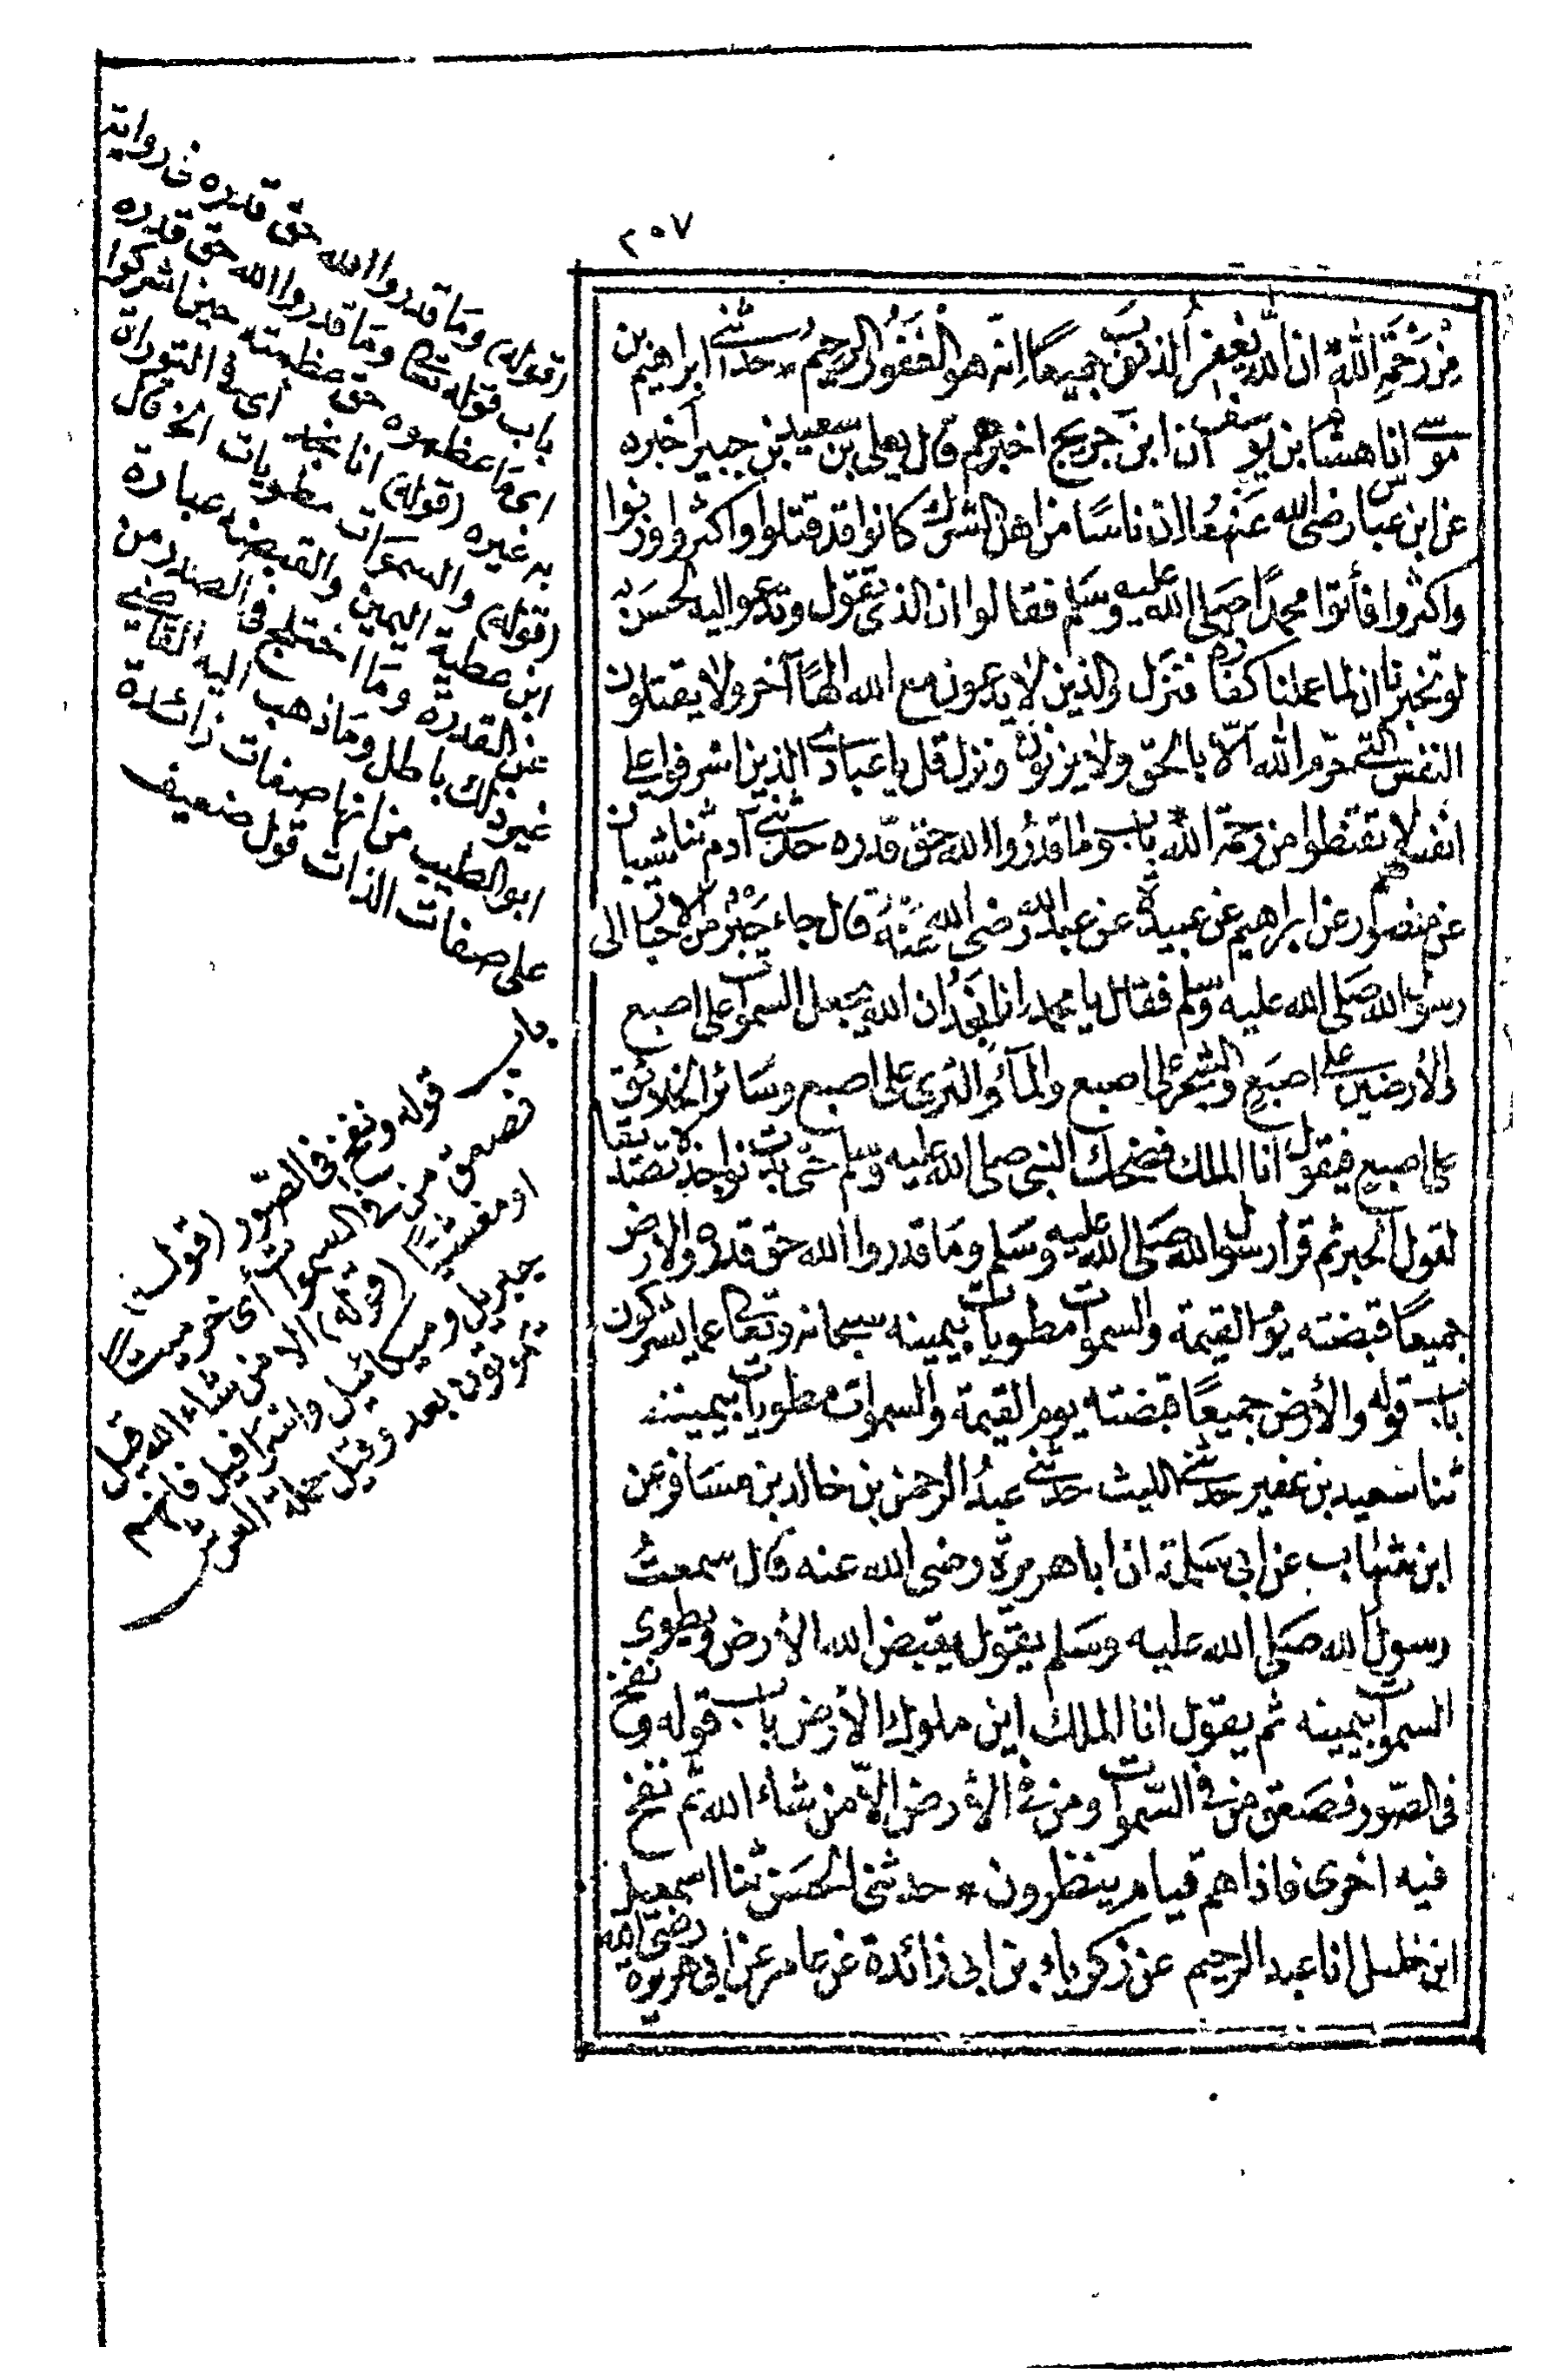 ٢٠٧
من رحمة الله ان الله يغفر الذنوب جميعا انه هو الغفور الرحيم * حدثني ابراهيم بن
موسى انا هشام بن يوسف ان ابن جريج اخبرهم قال يعلى بن سعيد بن جبير اخبره
عن ابن عباس رضى الله عنهما ان ناسًا من اهل الشرك كانوا قد قتلوا واكثروا وزنوا
واكثروا فأتوا محمدًا صلى الله عليه وسلم فقالوا ان الذى تقول وتدعو اليه لحسن
لو تخبرنا ان لما عملنا كفارة فنزل والذين لا يدعون مع الله الهًا آخر ولا يقتلون
النفس التى حرم الله الّا بالحق ولا يزنون ونزل قل يا عبادى الذين اسرفوا على
انفسهم لا تقنطوا من رحمة الله باب وما قدروا الله حق قدره حدثني آدم ثنا شيبان
عن منصور عن ابراهيم عن عبيدة عن عبد الله رضى الله عنه قال جاء حبر من الاحبار الى
رسول الله صلى الله عليه وسلم فقال يا محمد انا نجد ان الله يجعل السموات على اصبع
والأرضين على اصبع والشجر على اصبع والماء والثرى على اصبع وسائر الخلائق
على اصبع فيقول انا الملك فضحك النبى صلى الله عليه وسلم حتى بدت نواجذه تصديقا
لقول الحبر ثم قرأ رسول الله صلى الله عليه وسلم وما قدروا الله حق قدره والارض
جميعًا قبضته يوم القيمة والسموات مطويات بيمينه سبحانه وتعالى عما يشركون
باب قوله والأرض جميعًا قبضته يوم القيمة والسموات مطويات بيمينه
ثنا سعيد بن عفير حدثني الليث حدثني عبد الرحمن بن خالد بن مسافر عن
ابن شهاب عن ابى سلمة ان ابا هريرة رضى الله عنه قال سمعت
رسول الله صلى الله عليه وسلم يقول يقبض الله الأرض ويطوى
السموات بيمينه ثم يقول انا الملك اين ملوك الأرض باب قوله ونفخ
فى الصّور فصعق من فى السّموات ومن فى الأرض الّا من شاء الله ثم نفخ
فيه اخرى فاذا هم قيام ينظرون * حدثنى الحسن ثنا اسمعيل
ابن خليل انا عبد الرحيم عن زكرياء بن ابى زائدة عن عامر عن أبى هريرة رضى الله
(قوله) وما قدروا الله حق قدره فى رواية
باب قوله تعالى وما قدروا الله حق قدره
اى ما عظموه حق عظمته حين اشركوا
به غيره (قوله) انا نجد أى فى التوراة
(قوله) والسموات مطويات الخ قال
ابن عطية اليمين والقبضة عبارة
عن القدرة وما اختلج فى الصدر من
غير ذلك باطل وما ذهب اليه القاضى
ابو الطيب من انها صفات زائدة
على صفات الذات قول ضعيف
باب قوله ونفخ فى الصّور (قوله)
فصعق من فى السموات أى خر ميتًا
او مغشيًا (قوله) الا من شاء الله قيل
جبريل وميكائيل واسرافيل فانهم
يموتون بعد وقيل حملة العرش